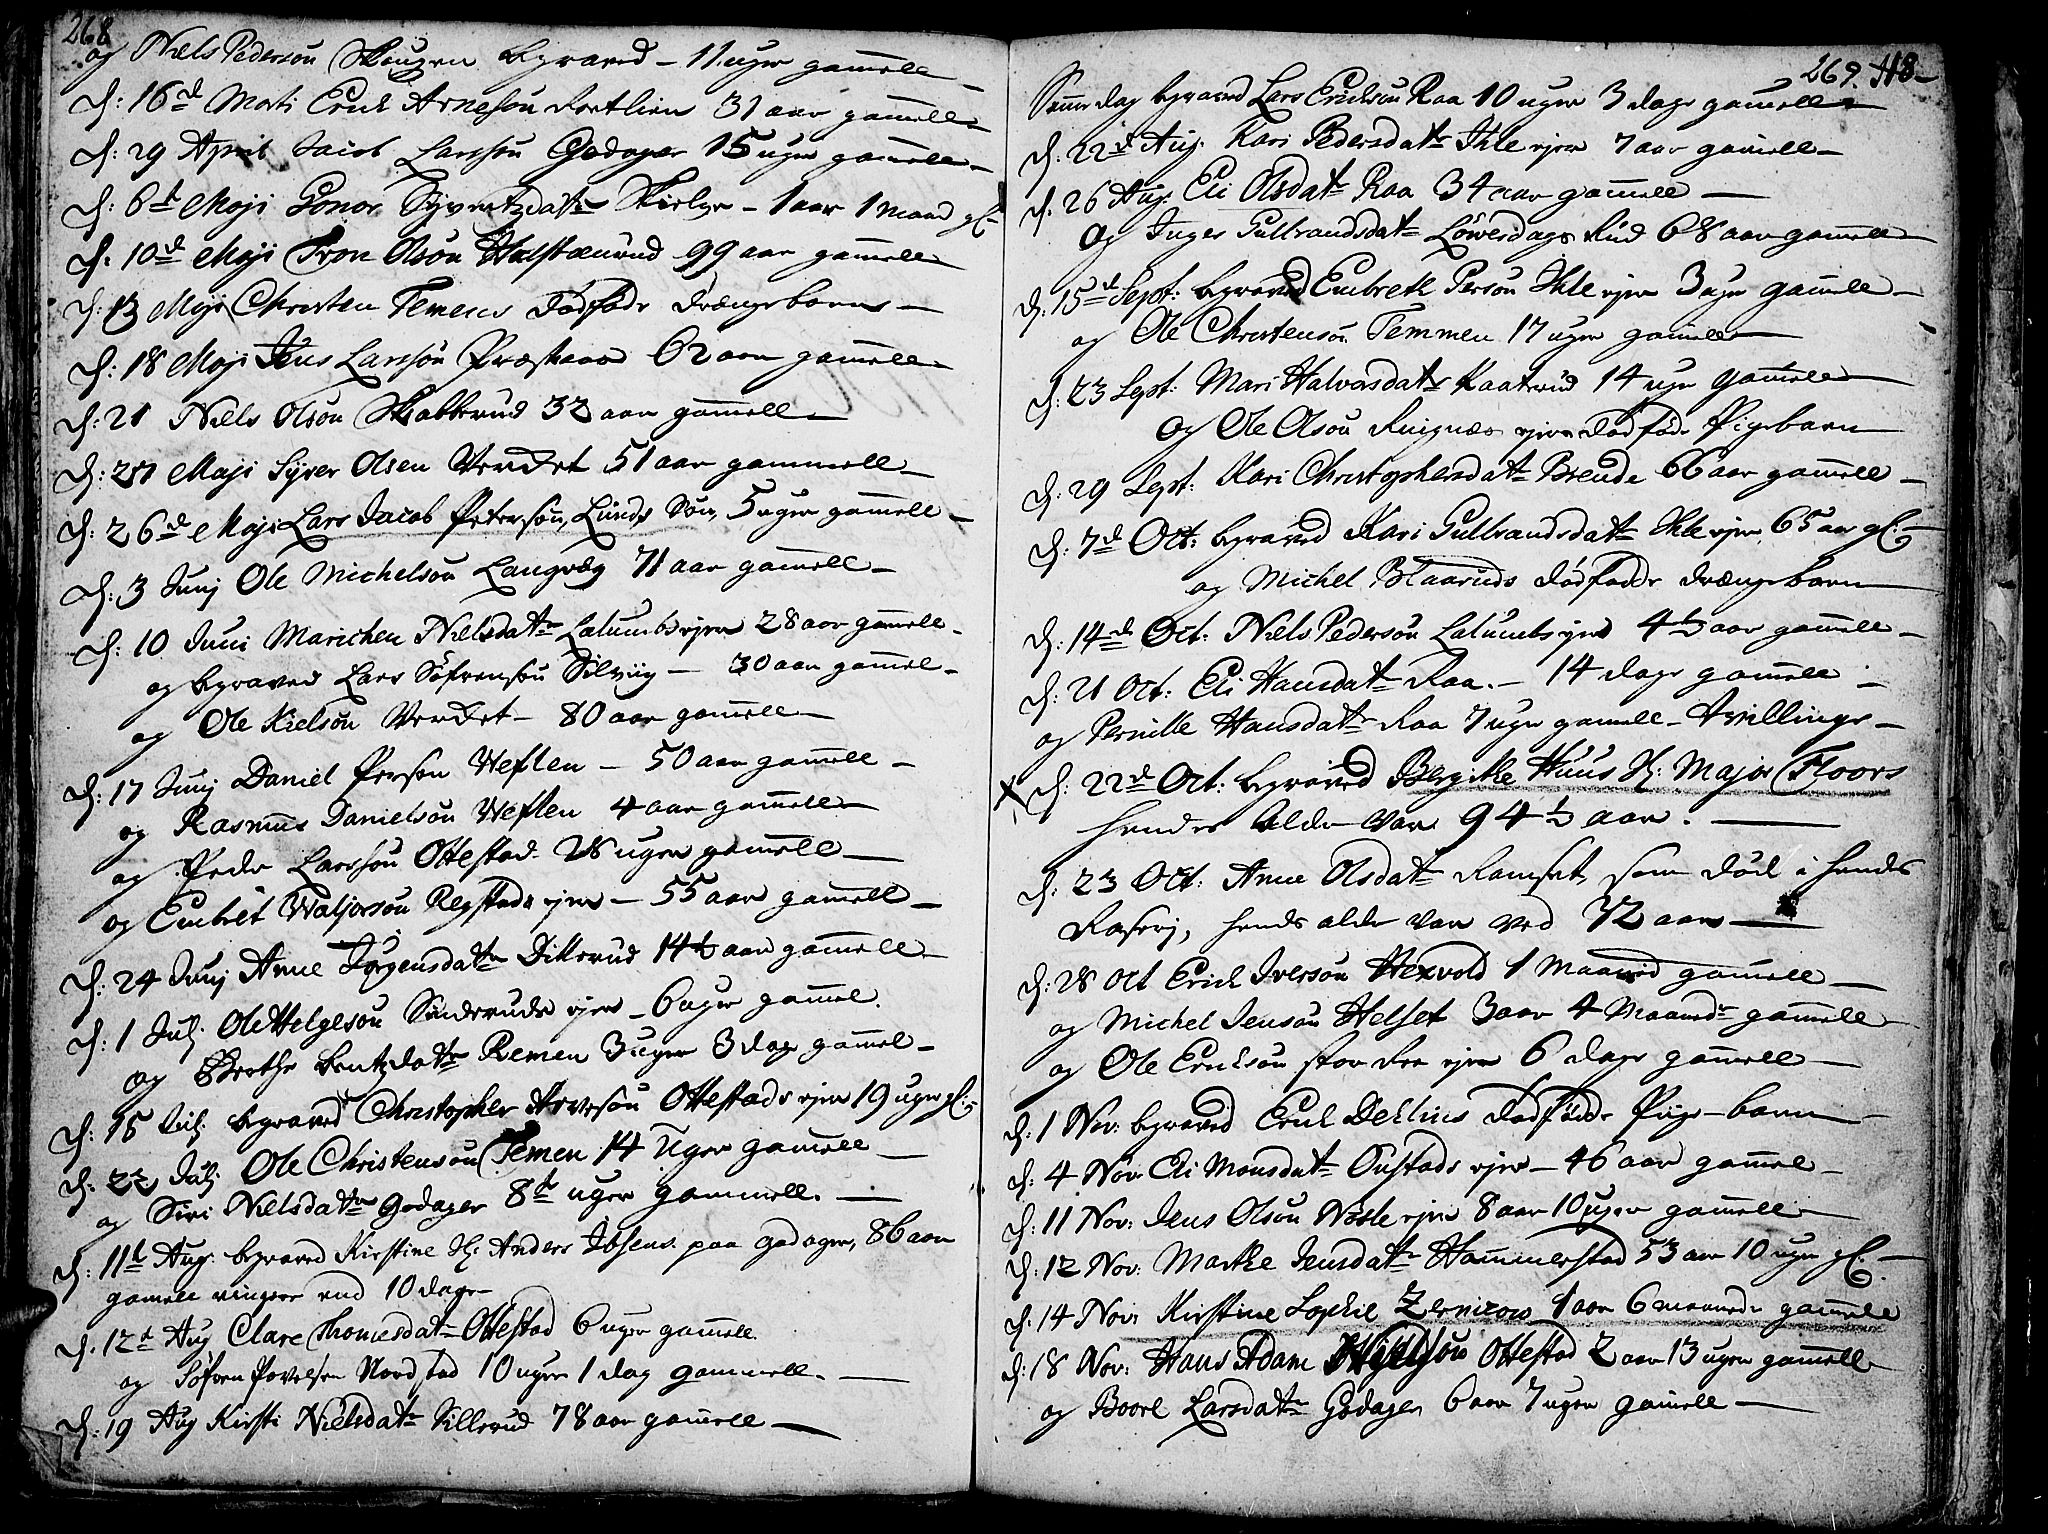 268
og Niels Pedersøn Skougen begraved – 11 uger gam̅ell –
d: 16d Marti Erich Arnesøn 31 aar gam̅ell –
d: 29 April Jacob Larssøn Godager 15 uger gam̅ell –
d: 6t Maji Gonor Syvertzdatr – 1 aar 1 maand gl. –
d: 10d Maji Tron Olsøn Halstænrud 99 aar gam̅ell
d: 13 Maji Christen Temens dødfødde drængebarn –
d: 18 Maji Jens Larssøn 62 aar gam̅ell
d: 21 Niels Olsøn Skabberud 32 aar gam̅ell –
d: 21 Maji Syver Olsen Verket 51 aar gammell –
d: 26d Maji Lars Jacob Petersøn, Lunds Søn, 5 uger gam̅ell –
d: 3 Junj Ole Michelsøn Langvæg 71 aar gam̅ell –
d: 10 Juni Marichen Nielsdatr Lalumbs ejer 28 aar gam̅ell –
og begraved Lars Søfrensøn Sølviig – 30 aar gam̅el –
og Ole Kielsøn Verket – 80 aar gam̅ell –
d: 17 Junj Daniel Persøn Heflen – 50 aar gam̅ell –
og Rasmus Danielsøn Heflen 4 aar gam̅ell –
og Peder Larssøn Ottestad 28 uger gam̅ell –
og Embret Regstads ejer – 55 aar gam̅ell –
d: 24 Junj Anne Jørgensdatr Dillerud 14½ aar gam̅ell –
d: 1 Julj Ole Helgesøn Sinderuds ejer – 6 uger gam̅el.
og Berthe Bentzdatr Remen 3 uger 3 dage gam̅el –
d: 15 Julj begraved Christopher Arvesøn Ottestads ejer 19 uger gl. –
d: 22 Julj Ole Christensøn Temen 14 Uger gam̅ell –
og Siri Nielsdatr Godager 8t uger gammell. –
d: 11t Aug. begraved Kirstine Hr Anders Ibsens paa godager, 86 aar
gam̅ell ringere end 10 dage –
d. 12t Aug Clare Thomesdatr Ottestad 6 uger gam̅ell.
og Søfren Povelsen Nordstad 10 uger 1 dag gammell. –
d: 19 Aug Kirsti Nielsdatr Killerud 78 aar gam̅ell –
269. 118 –
Sam̅e dag begraved Lars Erichsøn Raa 10 uger 3 dage gam̅ell –
d: 22d Aug. Kari Pedersdatr Ihle ejer 7 aar gam̅ell –
d. 26 Aug. Eli Olsdatr Raa 34 aar gam̅ell –
og Inger Gulbrandsdatr Løwesdags Rud 68 aar gam̅ell –
d: 15d Sept: begraved Embreth Persøn Ihle ejer 3 uger gam̅ell –
og Ole Christensøn Temmen 17 uger gam̅ell –
d: 23 Sept: Mari Halvorsdatr Kaaterud 14 uger gam̅ell
og Ole Olsøn Ringnæs ejers dødfødde Pigebarn
d: 29 Sept: Kari Christophersdatr Brende 66 aar gam̅ell –
d: 7d Oct: begraved Kari Gulbrandsdatr Ihle ejer, 65 aar gl. –
og Michel Blaaruds dødfødde drængebarn
d: 14d Oct: Niels Pedersøn Lalumbs ejer 4½ aar gam̅ell –
d: 21 Oct: Eli Hansdatr Raa. – 14 dage gam̅ell –
og Pernille Hansdatr Raa 7 uger gam̅ell – tvillinger –
d: 22d Oct: begraved Bergithe Huus Hr Major Floors
hendes Alder var 94½ aar. –
d: 23 Oct: Anne Olsdatr Ramset, som død i hendes
Raserj, hends alder var ved 32 aar –
d: 28 Oct Erich Iversøn Hexvold 1 Maaned gam̅ell –
og Michel Jensøn Helset 3 aar 4 Maaneder gam̅ell –
og Ole Erichsøn stor Ree ejer 6 dage gam̅ell –
d: 1 Nov: begraved Erich Dellins dødfødde Pige-barn –
d: 4 Nov Eli Monsdatr Oustads ejer – 46 aar gam̅el –
d: 11 Nov: Jens Olsøn Nøsle ejer 8 aar 10 uger gam̅ell –
d: 12 Nov: Marthe Jensdatr Hammerstad 53 aar 10 uger gl. –
d: 14 Nov: Kirstine Sophie Zernicow 1 aar 6 maaneder gam̅ell
d: 18 Nov: Hans Adam Ottestad 2 aar 13 uger gam̅ell
og Boorl Larsdatr Godager 6 aar 7 uger gam̅ell –